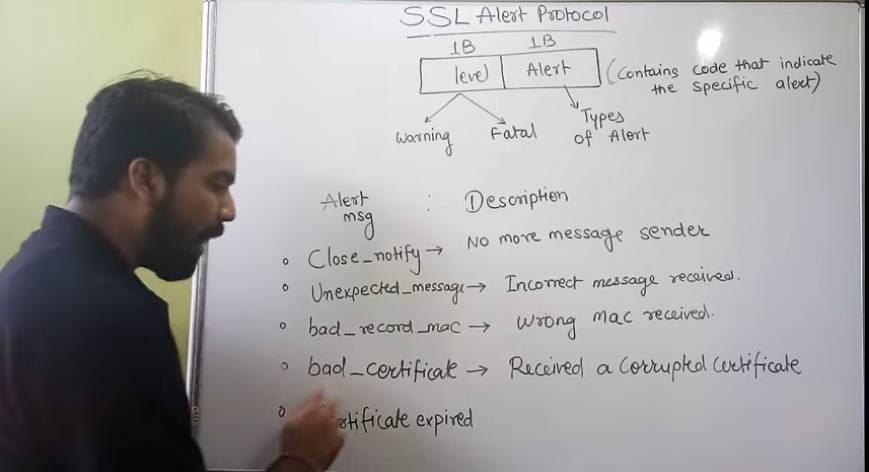 SSL Alert Protocol
1B 1B
level Alert (Contains code that indicate
the specific alert)
Warning Fatal Types
of Alert
Alert
msg : Description
Close_notify → No more message sender
Unexpected_message → Incorrect message received.
bad_record_mac → Wrong mac received.
bad_certificate → Received a corrupted certificate
expired